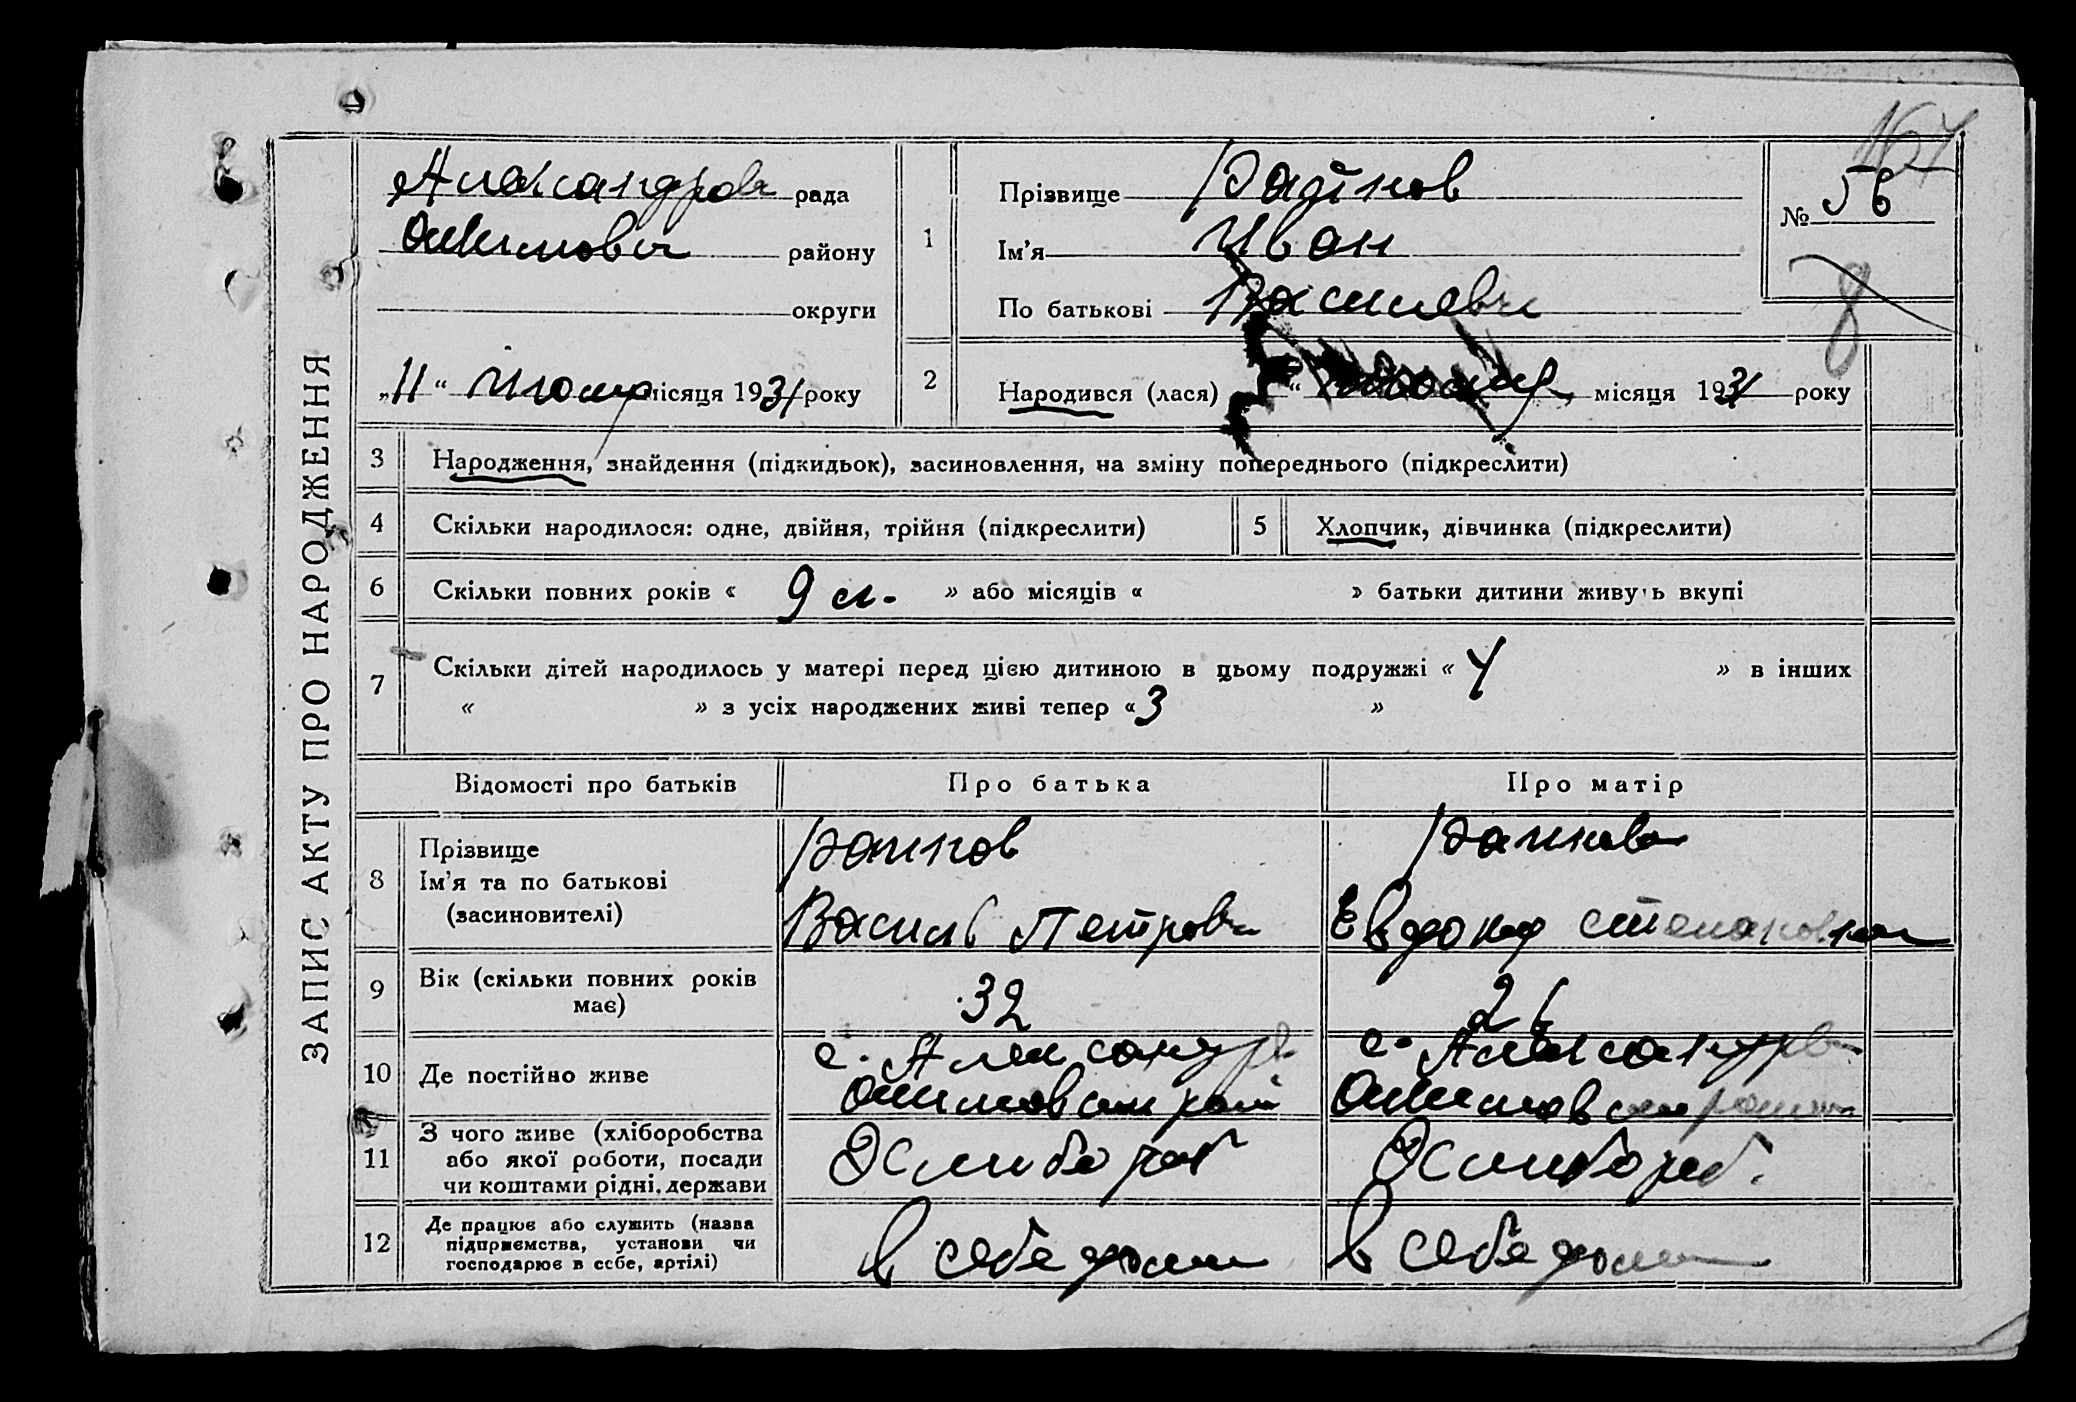 167
ЗАПИС АКТУ ПРО НАРОДЖЕННЯ
Александров рада
району
округи
„11“ місяця 1931 року
1
Прізвище
Ім'я Иван
По батькові Василеви
№ 56
8
2
Народився (лася) “ місяця 1931 року
3 Народження, знайдення (підкидьок), засиновлення, на зміну попереднього (підкреслити)
4 Скільки народилося: одне, двійня, трійня (підкреслити)
5 Хлопчик, дівчинка (підкреслити)
6 Скільки повних років « 9 л. » або місяців « » батьки дитини живуть вкупі
7 Скільки дітей народилось у матері перед цією дитиною в цьому подружжі « 4 » в інших
« » з усіх народжених живі тепер « 3 »
Відомості про батьків Про батька Про матір
8 Прізвище
Ім'я та по батькові
(засиновителі)
Василь Петрови
Евдокия Степановна
9 Вік (скільки повних років має)
32
26
10 Де постійно живе
с. Александр
с. Александров
11 З чого живе (хліборобства
або якої роботи, посади
чи коштами рідні, держави
Хлибороб
Хлибороб.
12 Де працює або служить (назва
підприємства, установи чи
господарює в себе, артілі)
в себе дома
в себе дома